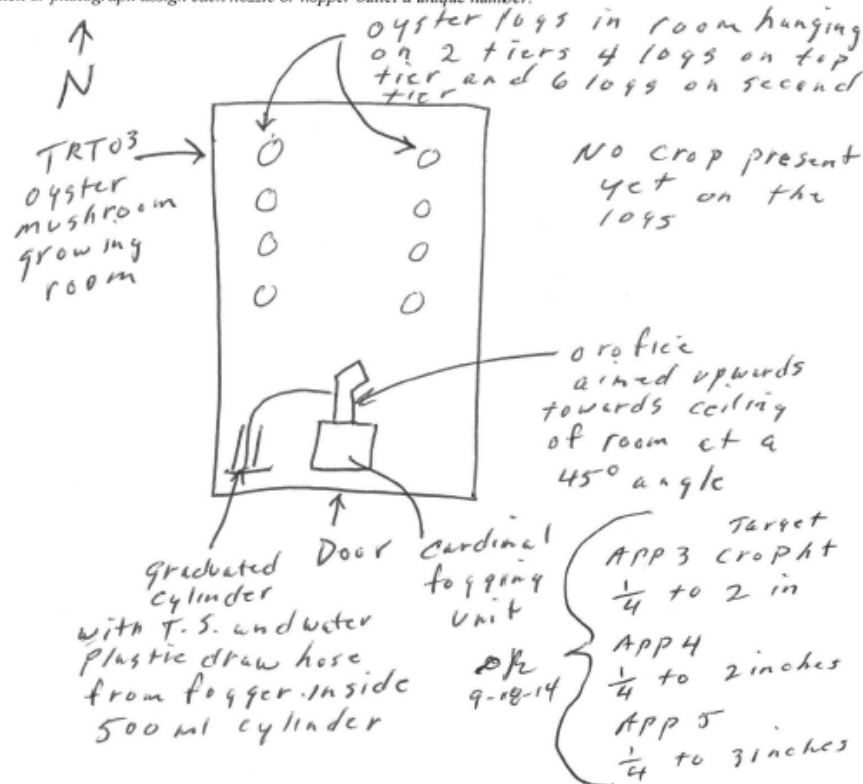 assign each nozzle or hopper outlet a unique number.
oyster logs in room hanging
on 2 tiers 4 logs on top
tier and 6 logs on second
tier
N
No crop present
yet on the
logs
TRT03
oyster
mushroom
growing
room
orofice
aimed upwards
towards ceiling
of room at a
45° angle
Graduated
cylinder
with T.S. and water
Plastic draw hose
from fogger inside
500 ml cylinder
Door
Cardinal
fogging
unit
9-18-14
Target
APP 3 Crop ht
1/4 to 2 in
APP 4
1/4 to 2 inches
APP 5
1/4 to 3 inches